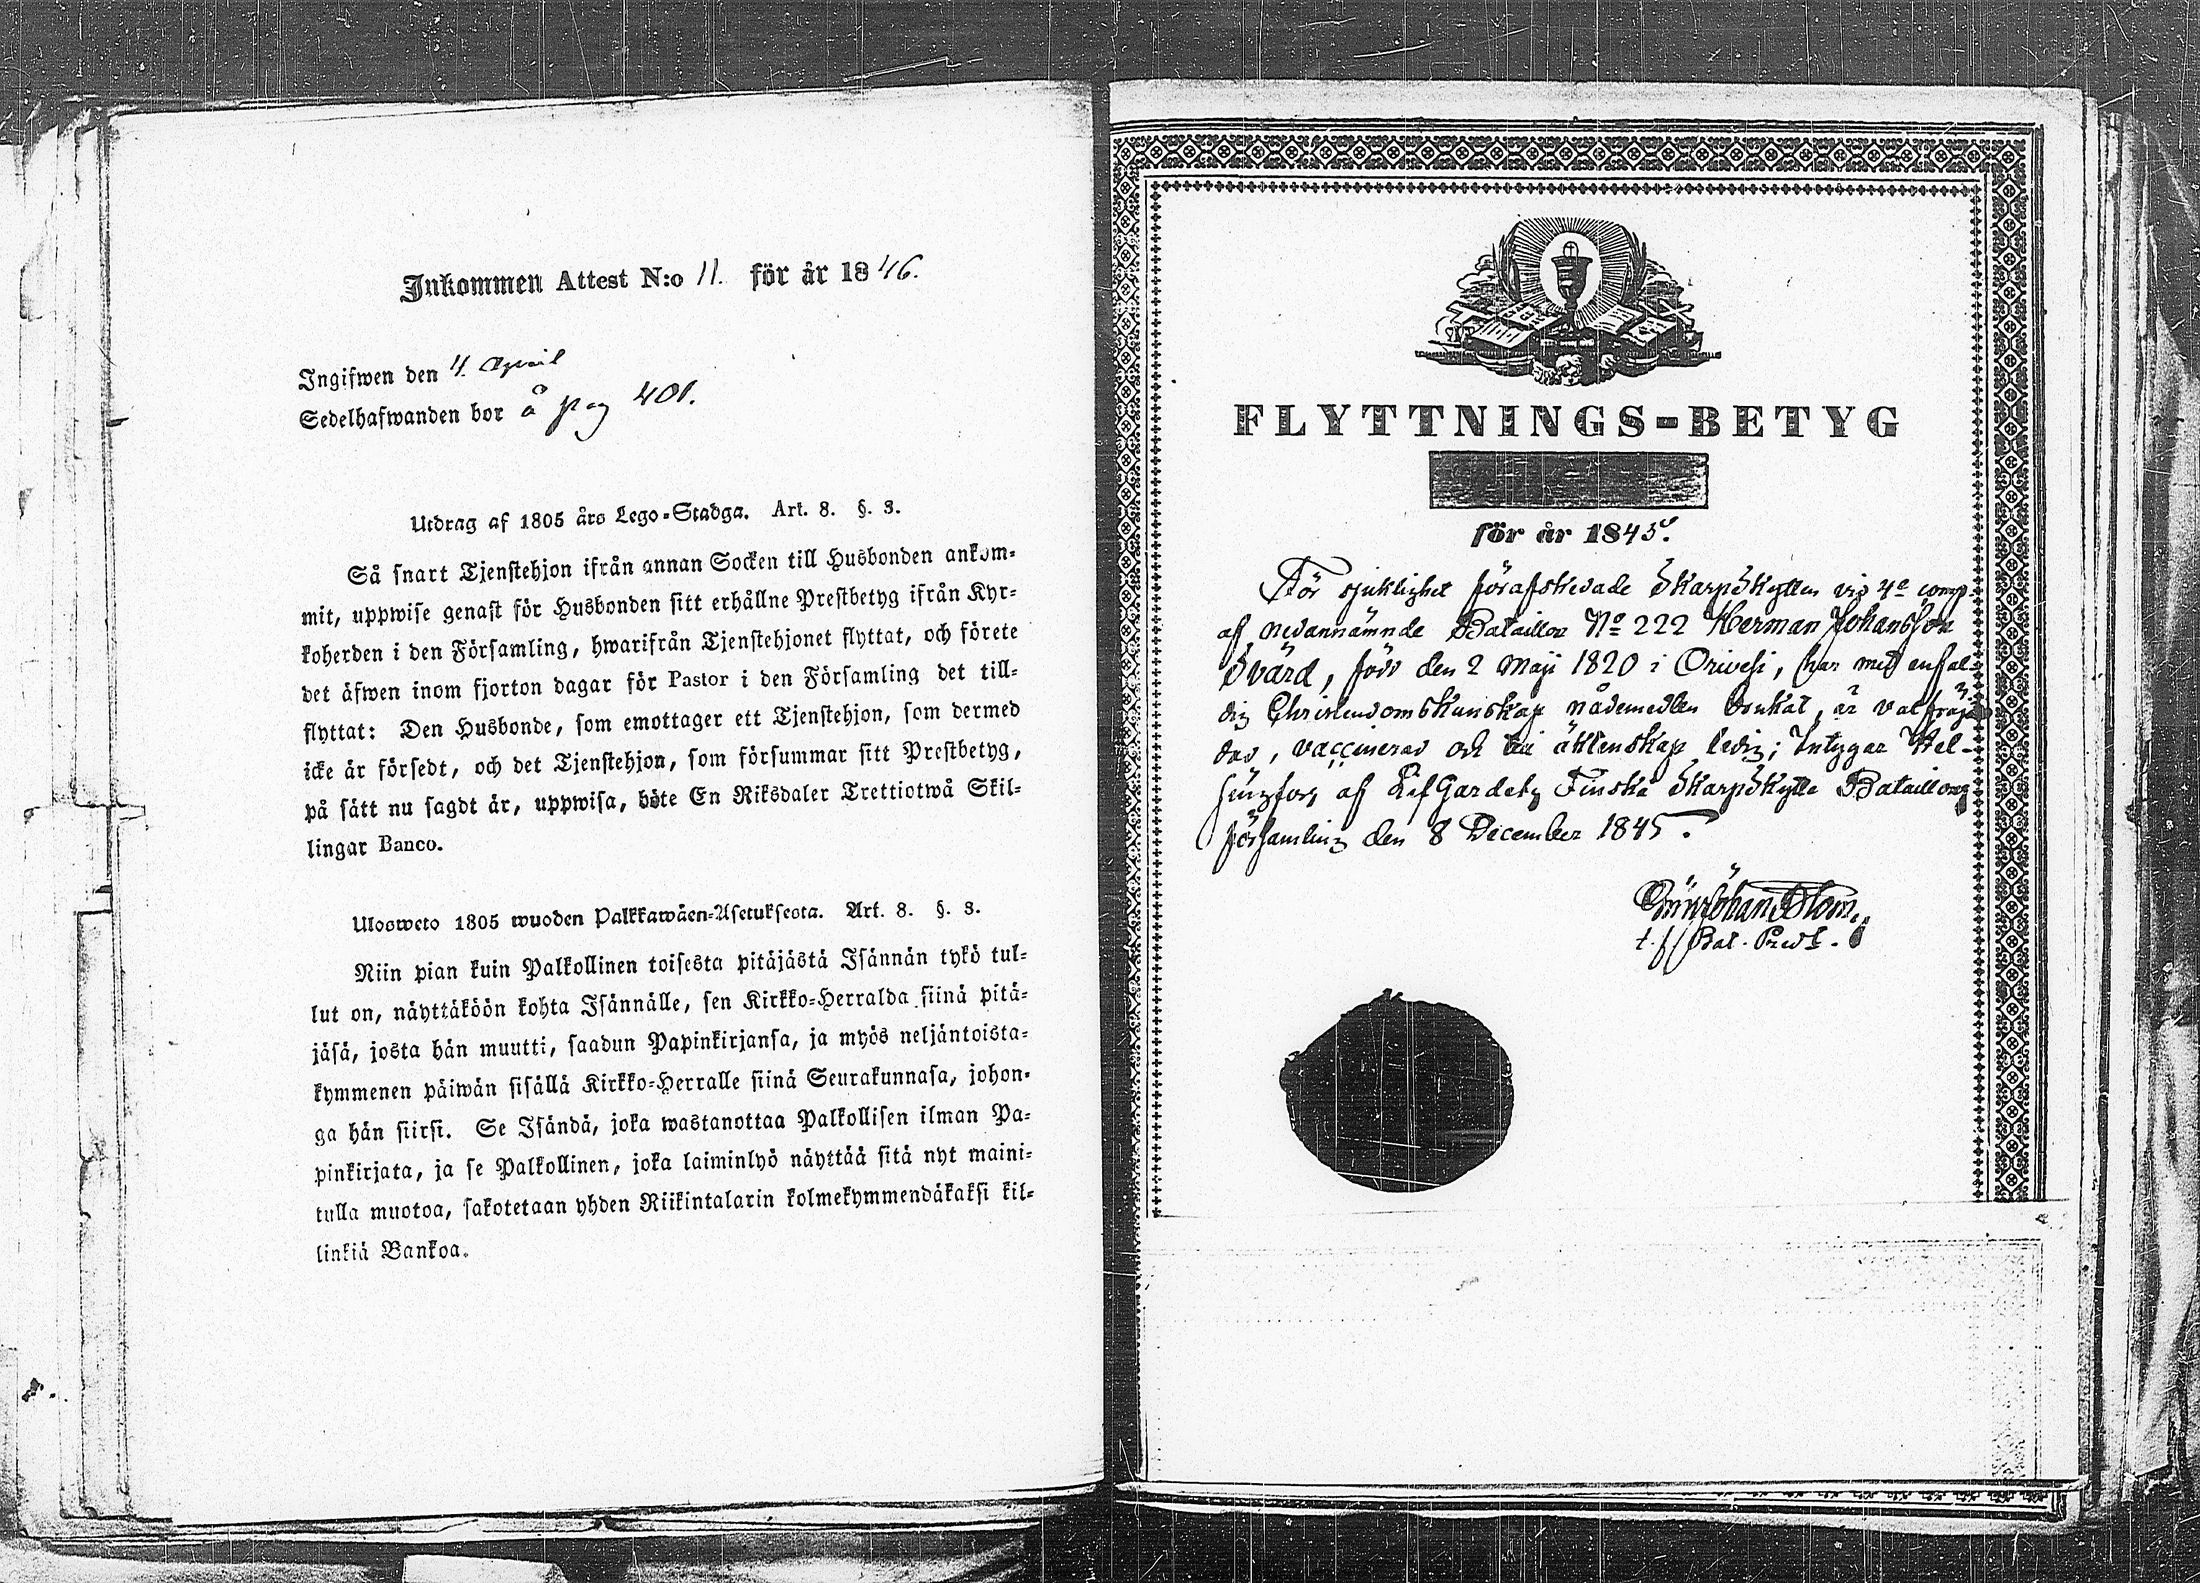 Inkommen Attest N:o 11. för år 1846.
Ingifwen den 4 April
Sedelhafwanden bor å pag 401.
Utdrag af 1805 års Lego-Stadga. Art. 8. §. 3.
Så snart Tjenstehjon ifrån annan Socken till Husbonden ankom-
mit, uppwise genast för Husbonden sitt erhållne Prestbetyg ifrån Kyr-
koherden i den Församling, hwarifrån Tjenstehjonet flyttat, och förete
det äfwen inom fjorton dagar för Pastor i den Församling det till-
flyttat: Den Husbonde, som emottager ett Tjenstehjon, som dermed
icke är försedt, och det Tjenstehjon, som försummar sitt Prestbetyg,
på sätt nu sagdt är, uppwisa, böte En Riksdaler Trettiotwå Skil-
lingar Banco.
Ulosweto 1805 wuoden Palkkawäen-Asetuksesta. Art. 8. §. 3.
Niin pian kuin Palkollinen toisesta pitäjästä Isännän tykö tul-
lut on, näyttäköön kohta Isännälle, sen Kirkko-Herralda siinä pitä-
jäsä, josta hän muutti, saadun Papinkirjansa, ja myös neljäntoista-
kymmenen päiwän sisällä Kirkko-Herralle siinä Seurakunnasa, johon-
ga hän siirsi. Se Isändä, joka wastanottaa Palkollisen ilman Pa-
pinkirjata, ja se Palkollinen, joka laiminlyö näyttää sitä nyt maini-
tulla muotoa, sakotetaan yhden Riikintalarin kolmekymmendäkaksi kil-
linkiä Bankoa.
FLYTTNINGS-BETYG
för år 1845.
För sjuklighet förafskedade Skarpskytten vid 4e comp.
af nedannämnde Bataillon No 222 Herman Johansson
Svärd, född den 2 Maji 1820 i Orivesi, har med enfal-
dig Christendomskunskap nådemedlen brukat, är välfräj-
dad, vaccinerad och till äktenskap ledig; Intygar Hel-
singfors af Lif Gardets Finska Skarpskytte Bataillons
församling den 8 December 1845.
t. f. Bat. Pred.